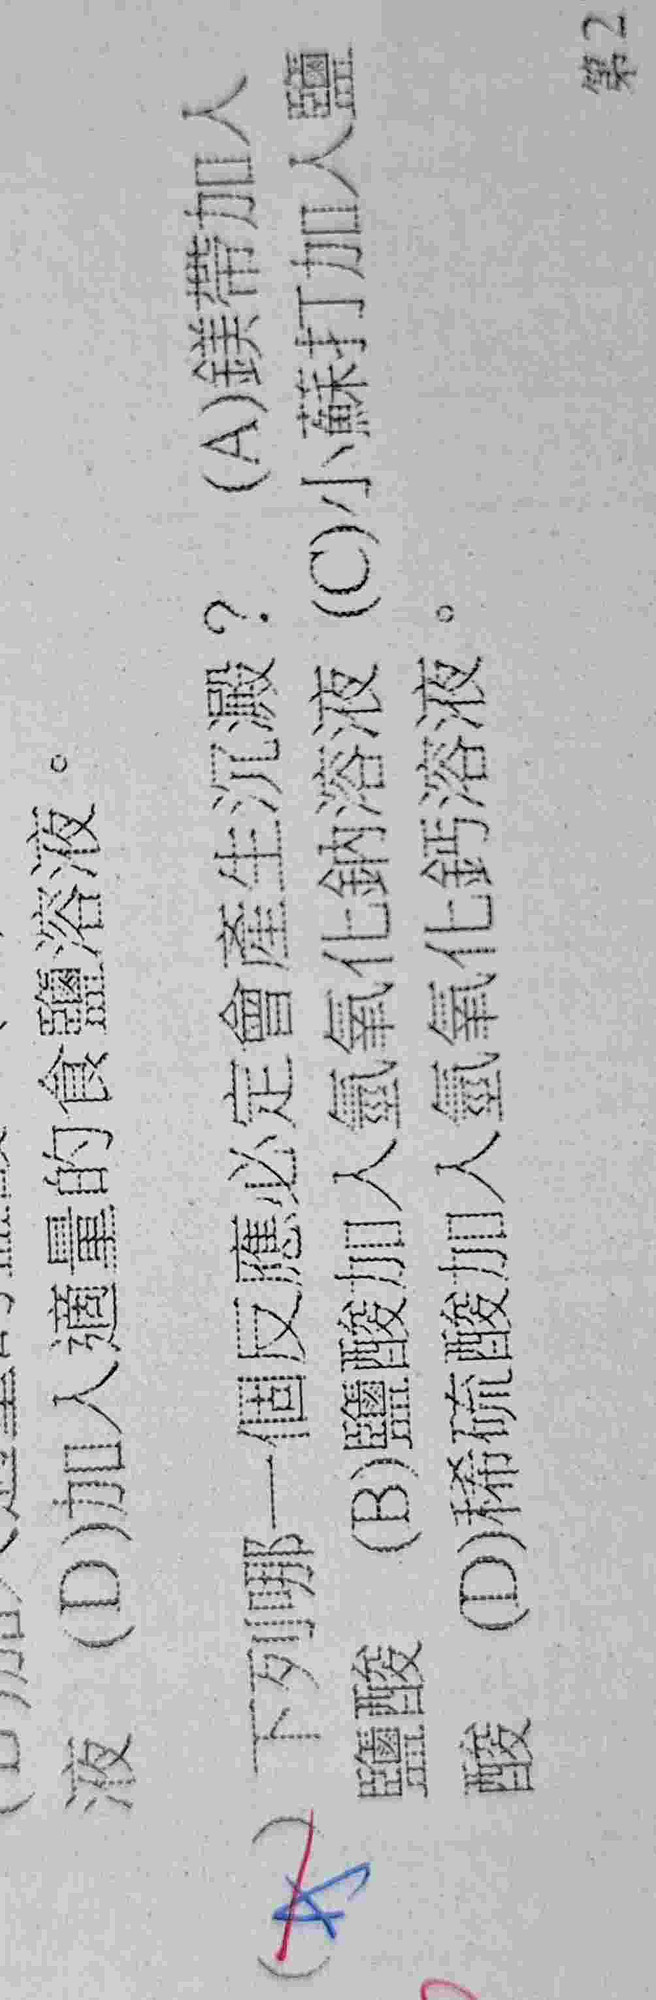 液 (D)加入適量的食鹽溶液。
( A ) 下列哪一個反應必定會產生沉澱？ (A)鎂帶加入
鹽酸 (B)鹽酸加入氫氧化鈉溶液 (C)小蘇打加入鹽
酸 (D)稀硫酸加入氫氧化鈣溶液。
第 2